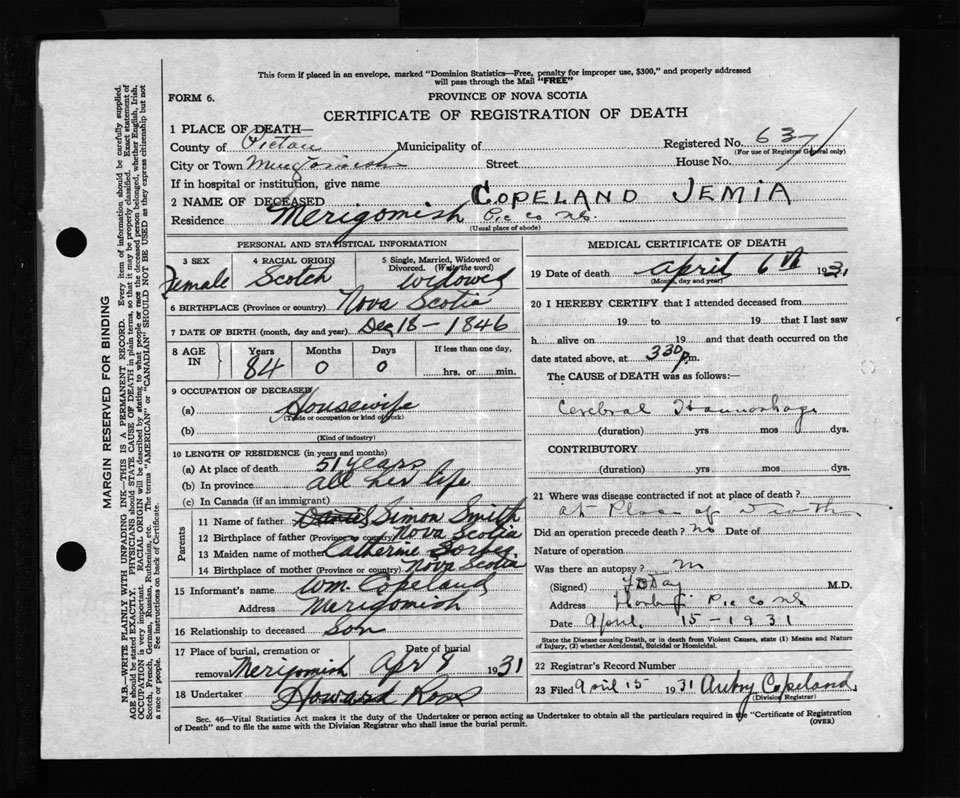 This form if placed in an envelope, marked "Dominion Statistics—Free, penalty for improper use, $300," and properly addressed
will pass through the Mail "FREE"
FORM 6.
PROVINCE OF NOVA SCOTIA
CERTIFICATE OF REGISTRATION OF DEATH
1 PLACE OF DEATH—
County of Pictou Municipality of Registered No. 637
(For use of Registrar General only)
City or Town Street House No.
If in hospital or institution, give name
2 NAME OF DECEASED COPELAND JEMIA
Residence Merigomish Pic co N.S.
(Usual place of abode)
PERSONAL AND STATISTICAL INFORMATION
3 SEX 4 RACIAL ORIGIN 5 Single, Married, Widowed or Divorced. (Write the word)
Female Scotch Widowed
6 BIRTHPLACE (Province or country) Nova Scotia
7 DATE OF BIRTH (month, day and year) Dec 18 - 1846
8 AGE IN Years Months Days If less than one day,
84 0 0 hrs. or min.
9 OCCUPATION OF DECEASED
(a) Housewife
(Trade or occupation or kind of work)
(b)
(Kind of industry)
10 LENGTH OF RESIDENCE (in years and months)
(a) At place of death 51 years
(b) In province all her life
(c) In Canada (if an immigrant)
Parents
11 Name of father Daniel Simon Smith
12 Birthplace of father (Province or country) Nova Scotia
13 Maiden name of mother Catherine
14 Birthplace of mother (Province or country) Nova Scotia
15 Informant's name Wm. Copeland
Address Merigomish
16 Relationship to deceased Son
17 Place of burial, cremation or removal Merigomish Date of burial Apr 8 1931
18 Undertaker Howard Ross
MEDICAL CERTIFICATE OF DEATH
19 Date of death April 6th 1931
(Month, day and year)
20 I HEREBY CERTIFY that I attended deceased from
19 to 19 that I last saw
h alive on 19 and that death occurred on the
date stated above, at 330 p.m.
The CAUSE of DEATH was as follows:—
Cerebral Haemorhage
(duration) yrs mos dys.
CONTRIBUTORY
(duration) yrs. mos. dys.
21 Where was disease contracted if not at place of death?
at Place of Death
Did an operation precede death? No Date of
Nature of operation
Was there an autopsy?
(Signed) M.D.
Address Pic Co N.S.
Date April 15-1931
State the Disease causing Death, or in death from Violent Causes, state (1) Means and Nature
of Injury, (2) whether Accidental, Suicidal or Homicidal.
22 Registrar's Record Number
23 Filed April 15 1931 Copeland
(Division Registrar)
Sec. 46—Vital Statistics Act makes it the duty of the Undertaker or person acting as Undertaker to obtain all the particulars required in the "Certificate of Registration
of Death" and to file the same with the Division Registrar who shall issue the burial permit. (OVER)
MARGIN RESERVED FOR BINDING
N.B.—WRITE PLAINLY WITH UNFADING INK—THIS IS A PERMANENT RECORD. Every item of information should be carefully supplied.
AGE should be stated EXACTLY. PHYSICIANS should STATE CAUSE OF DEATH in plain terms, so that it may be properly classified. Exact statement of
OCCUPATION is very important. RACIAL ORIGIN will be described by stating to what people or race the deceased person belonged, whether English, Irish,
Scotch, French, German, Russian, Ruthenian, etc. The terms "AMERICAN" or "CANADIAN" SHOULD NOT BE USED as they express citizenship but not
a race or people. See instructions on back of Certificate.